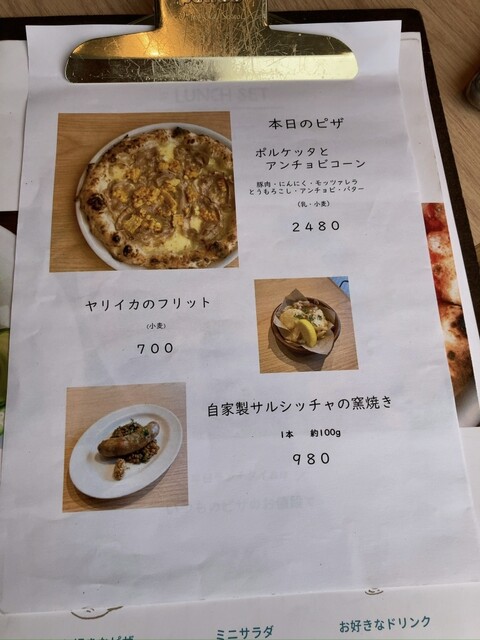 本日のピザ
ポルケッタと
アンチョビコーン
豚肉・にんにく・モッツァレラ
とうもろこし・アンチョビ・バター
(乳・小麦)
2480
ヤリイカのフリット
(小麦)
700
自家製サルシッチャの窯焼き
1本 約100g
980
ミニサラダ
お好きなドリンク